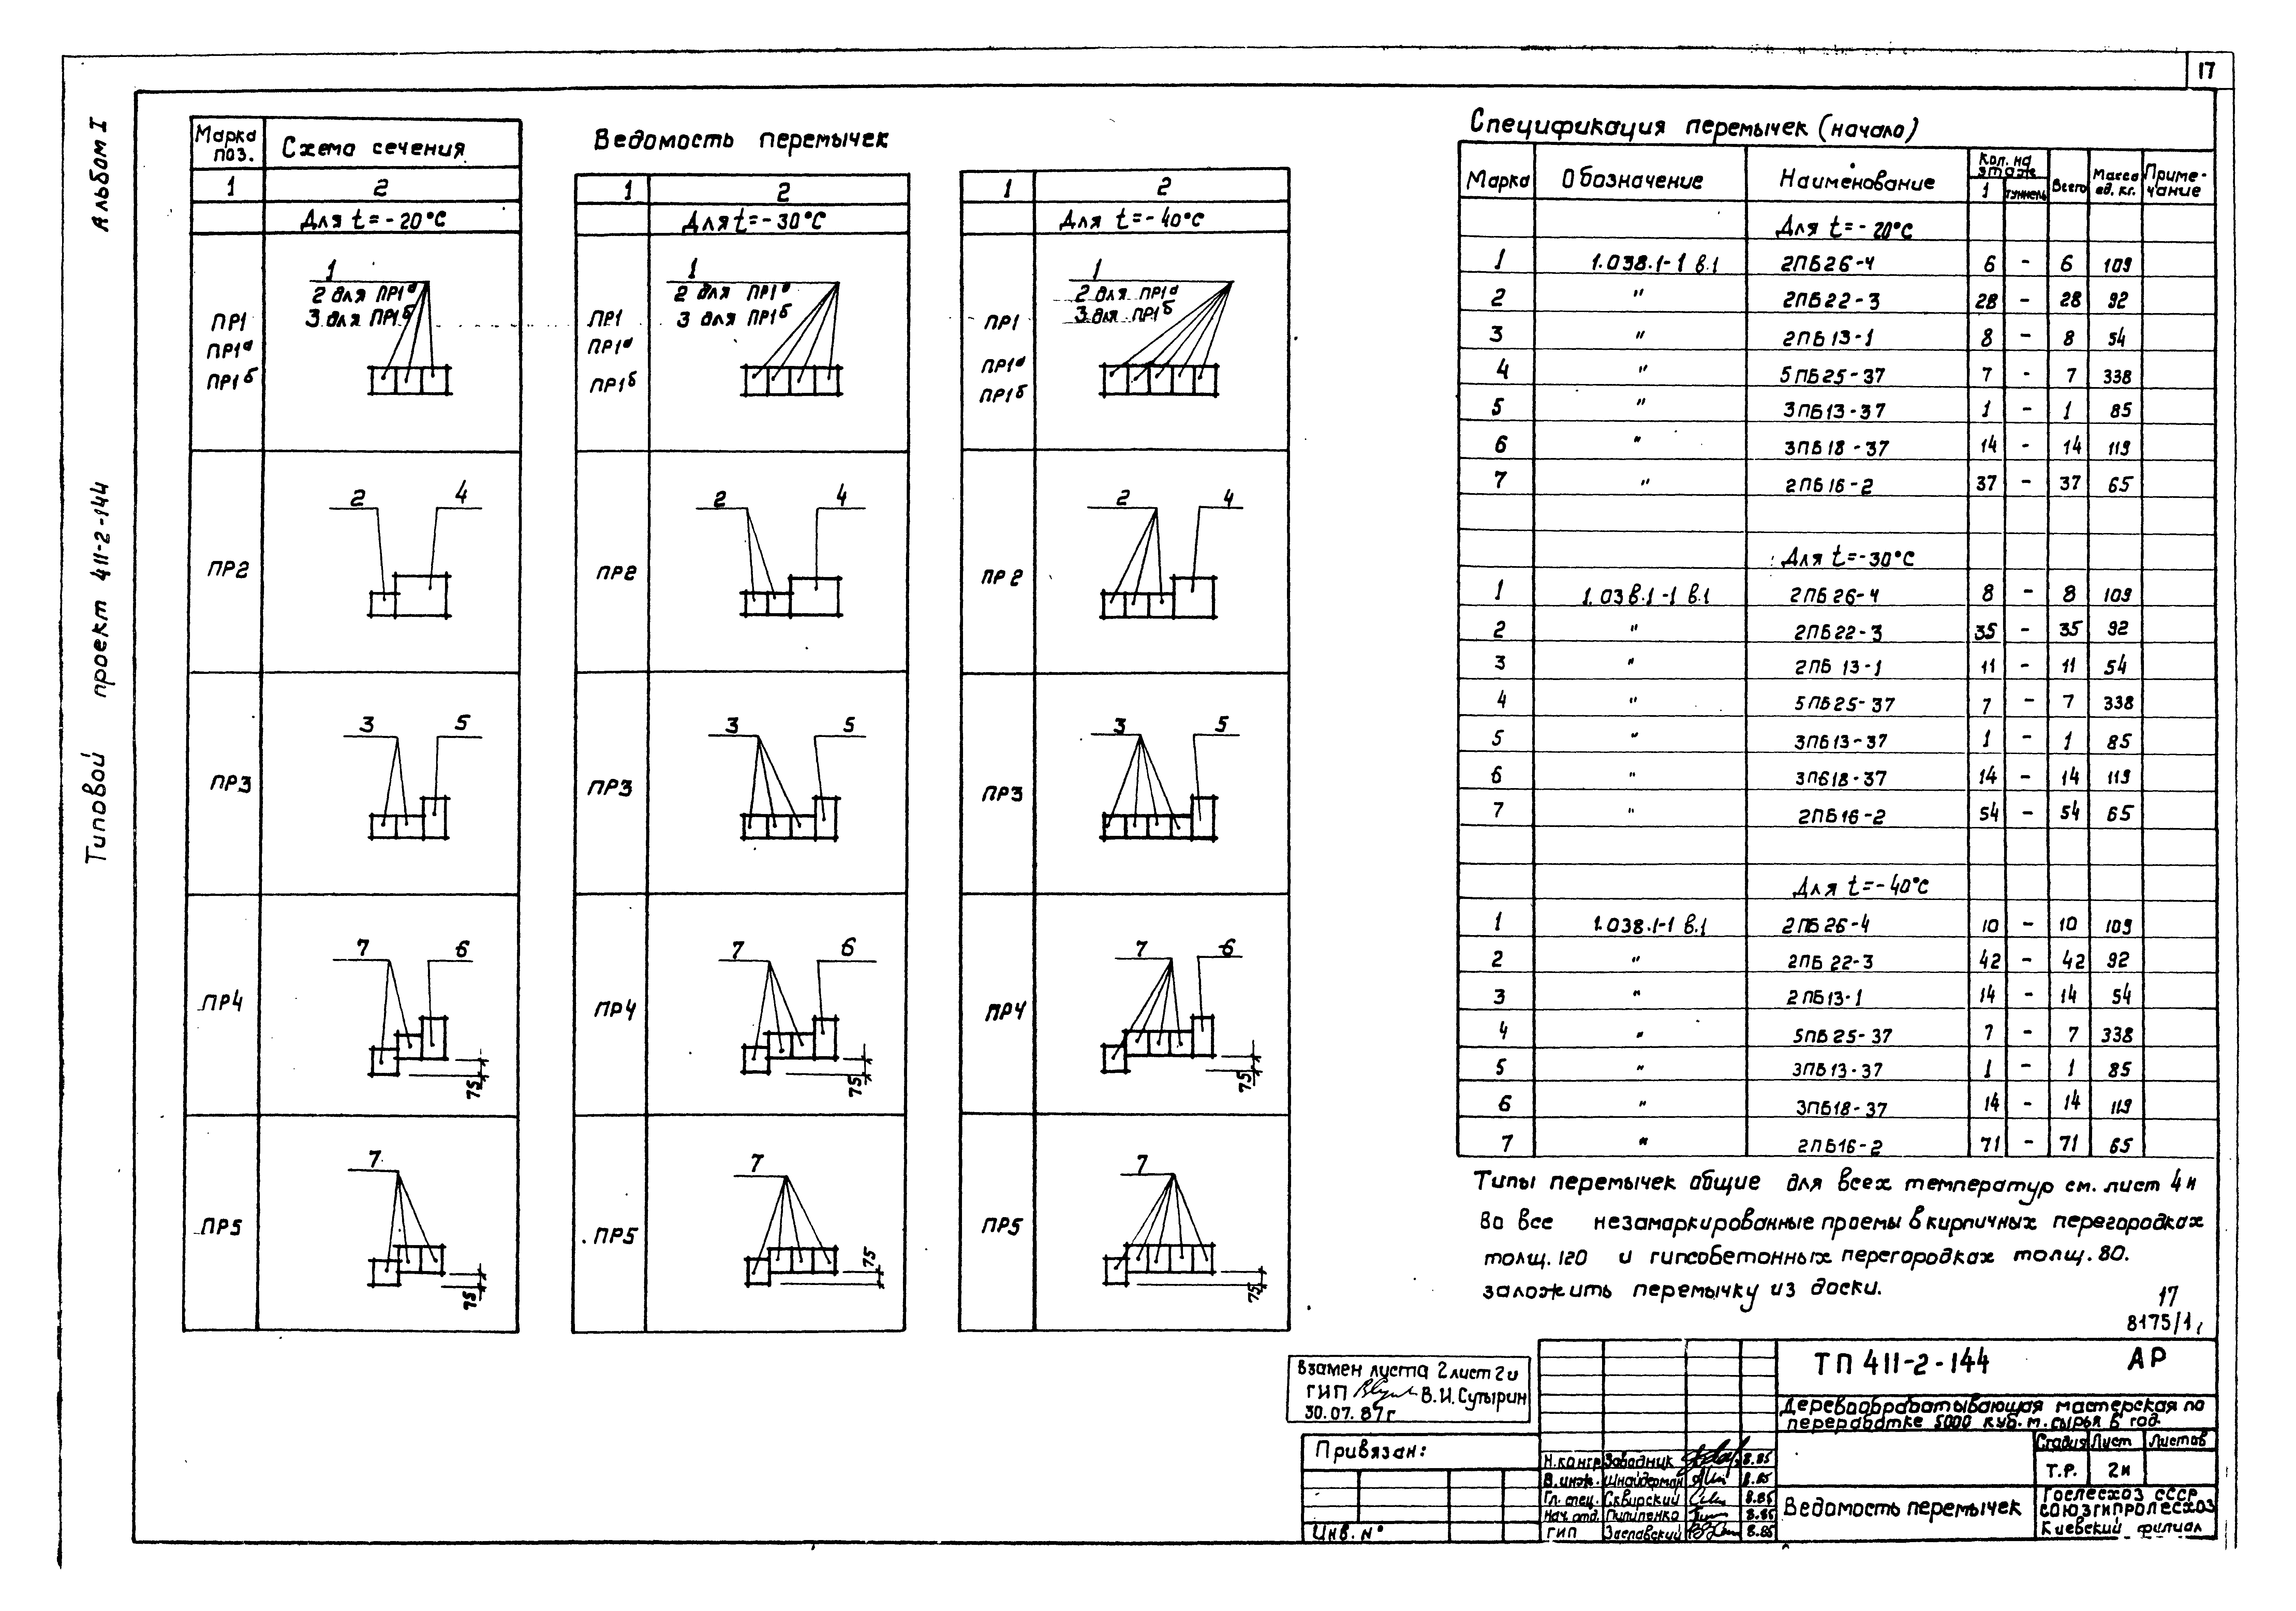 17
Альбом I
Типовой проект 411-2-144
Ведомость перемычек
Марка поз. Схема сечения
1 2
Для t=-20°С
ПР1
ПР1а
ПР1б
1
2 для ПР1а
3 для ПР1б
ПР2
2 4
ПР3
3 5
ПР4
7 6
75
ПР5
7
75
1 2
Для t=-30°С
ПР1
ПР1а
ПР1б
1
2 для ПР1а
3 для ПР1б
ПР2
2 4
ПР3
3 5
ПР4
7 6
75
ПР5
7
75
1 2
Для t=-40°С
ПР1
ПР1а
ПР1б
1
2 для ПР1а
3 для ПР1б
ПР2
2 4
ПР3
3 5
ПР4
7 6
75
ПР5
7
75
Спецификация перемычек (начало)
Марка Обозначение Наименование Кол. на этаж 1 туннель Всего Масса ед. кг. Приме-чание
Для t=-20°С
1 1.038.1-1 в.1 2ПБ26-4 6 - 6 109
2 " 2ПБ22-3 28 - 28 92
3 " 2ПБ13-1 8 - 8 54
4 " 5ПБ25-37 7 - 7 338
5 " 3ПБ13-37 1 - 1 85
6 " 3ПБ18-37 14 - 14 119
7 " 2ПБ16-2 37 - 37 65
Для t=-30°С
1 1.038.1-1 в.1 2ПБ26-4 8 - 8 109
2 " 2ПБ22-3 35 - 35 92
3 " 2ПБ13-1 11 - 11 54
4 " 5ПБ25-37 7 - 7 338
5 " 3ПБ13-37 1 - 1 85
6 " 3ПБ18-37 14 - 14 119
7 " 2ПБ16-2 54 - 54 65
Для t=-40°С
1 1.038.1-1 в.1 2ПБ26-4 10 - 10 109
2 " 2ПБ22-3 42 - 42 92
3 " 2ПБ13-1 14 - 14 54
4 " 5ПБ25-37 7 - 7 338
5 " 3ПБ13-37 1 - 1 85
6 " 3ПБ18-37 14 - 14 119
7 " 2ПБ16-2 71 - 71 65
Типы перемычек общие для всех температур см. лист 4и
Во все незамаркированные проемы в кирпичных перегородках
толщ. 120 и гипсобетонных перегородках толщ. 80.
заложить перемычку из доски.
17
8175/1
Взамен листа 2 лист 2и
ГИП В.И. Сутырин
30.07.87г
Привязан:
Инв. №
Н.контр Заводник 8.85
В.инж. Шнайдерман 8.85
Гл. спец. Сквирский 8.85
Нач. отд. Пилипенко 8.85
ГИП Заславский 8.85
ТП 411-2-144 АР
Деревообрабатывающая мастерская по
переработке 5000 куб. м. сырья в год.
Стадия Лист Листов
Т.Р. 2и
Ведомость перемычек
Гослесхоз СССР
Союзгипролесхоз
Киевский филиал